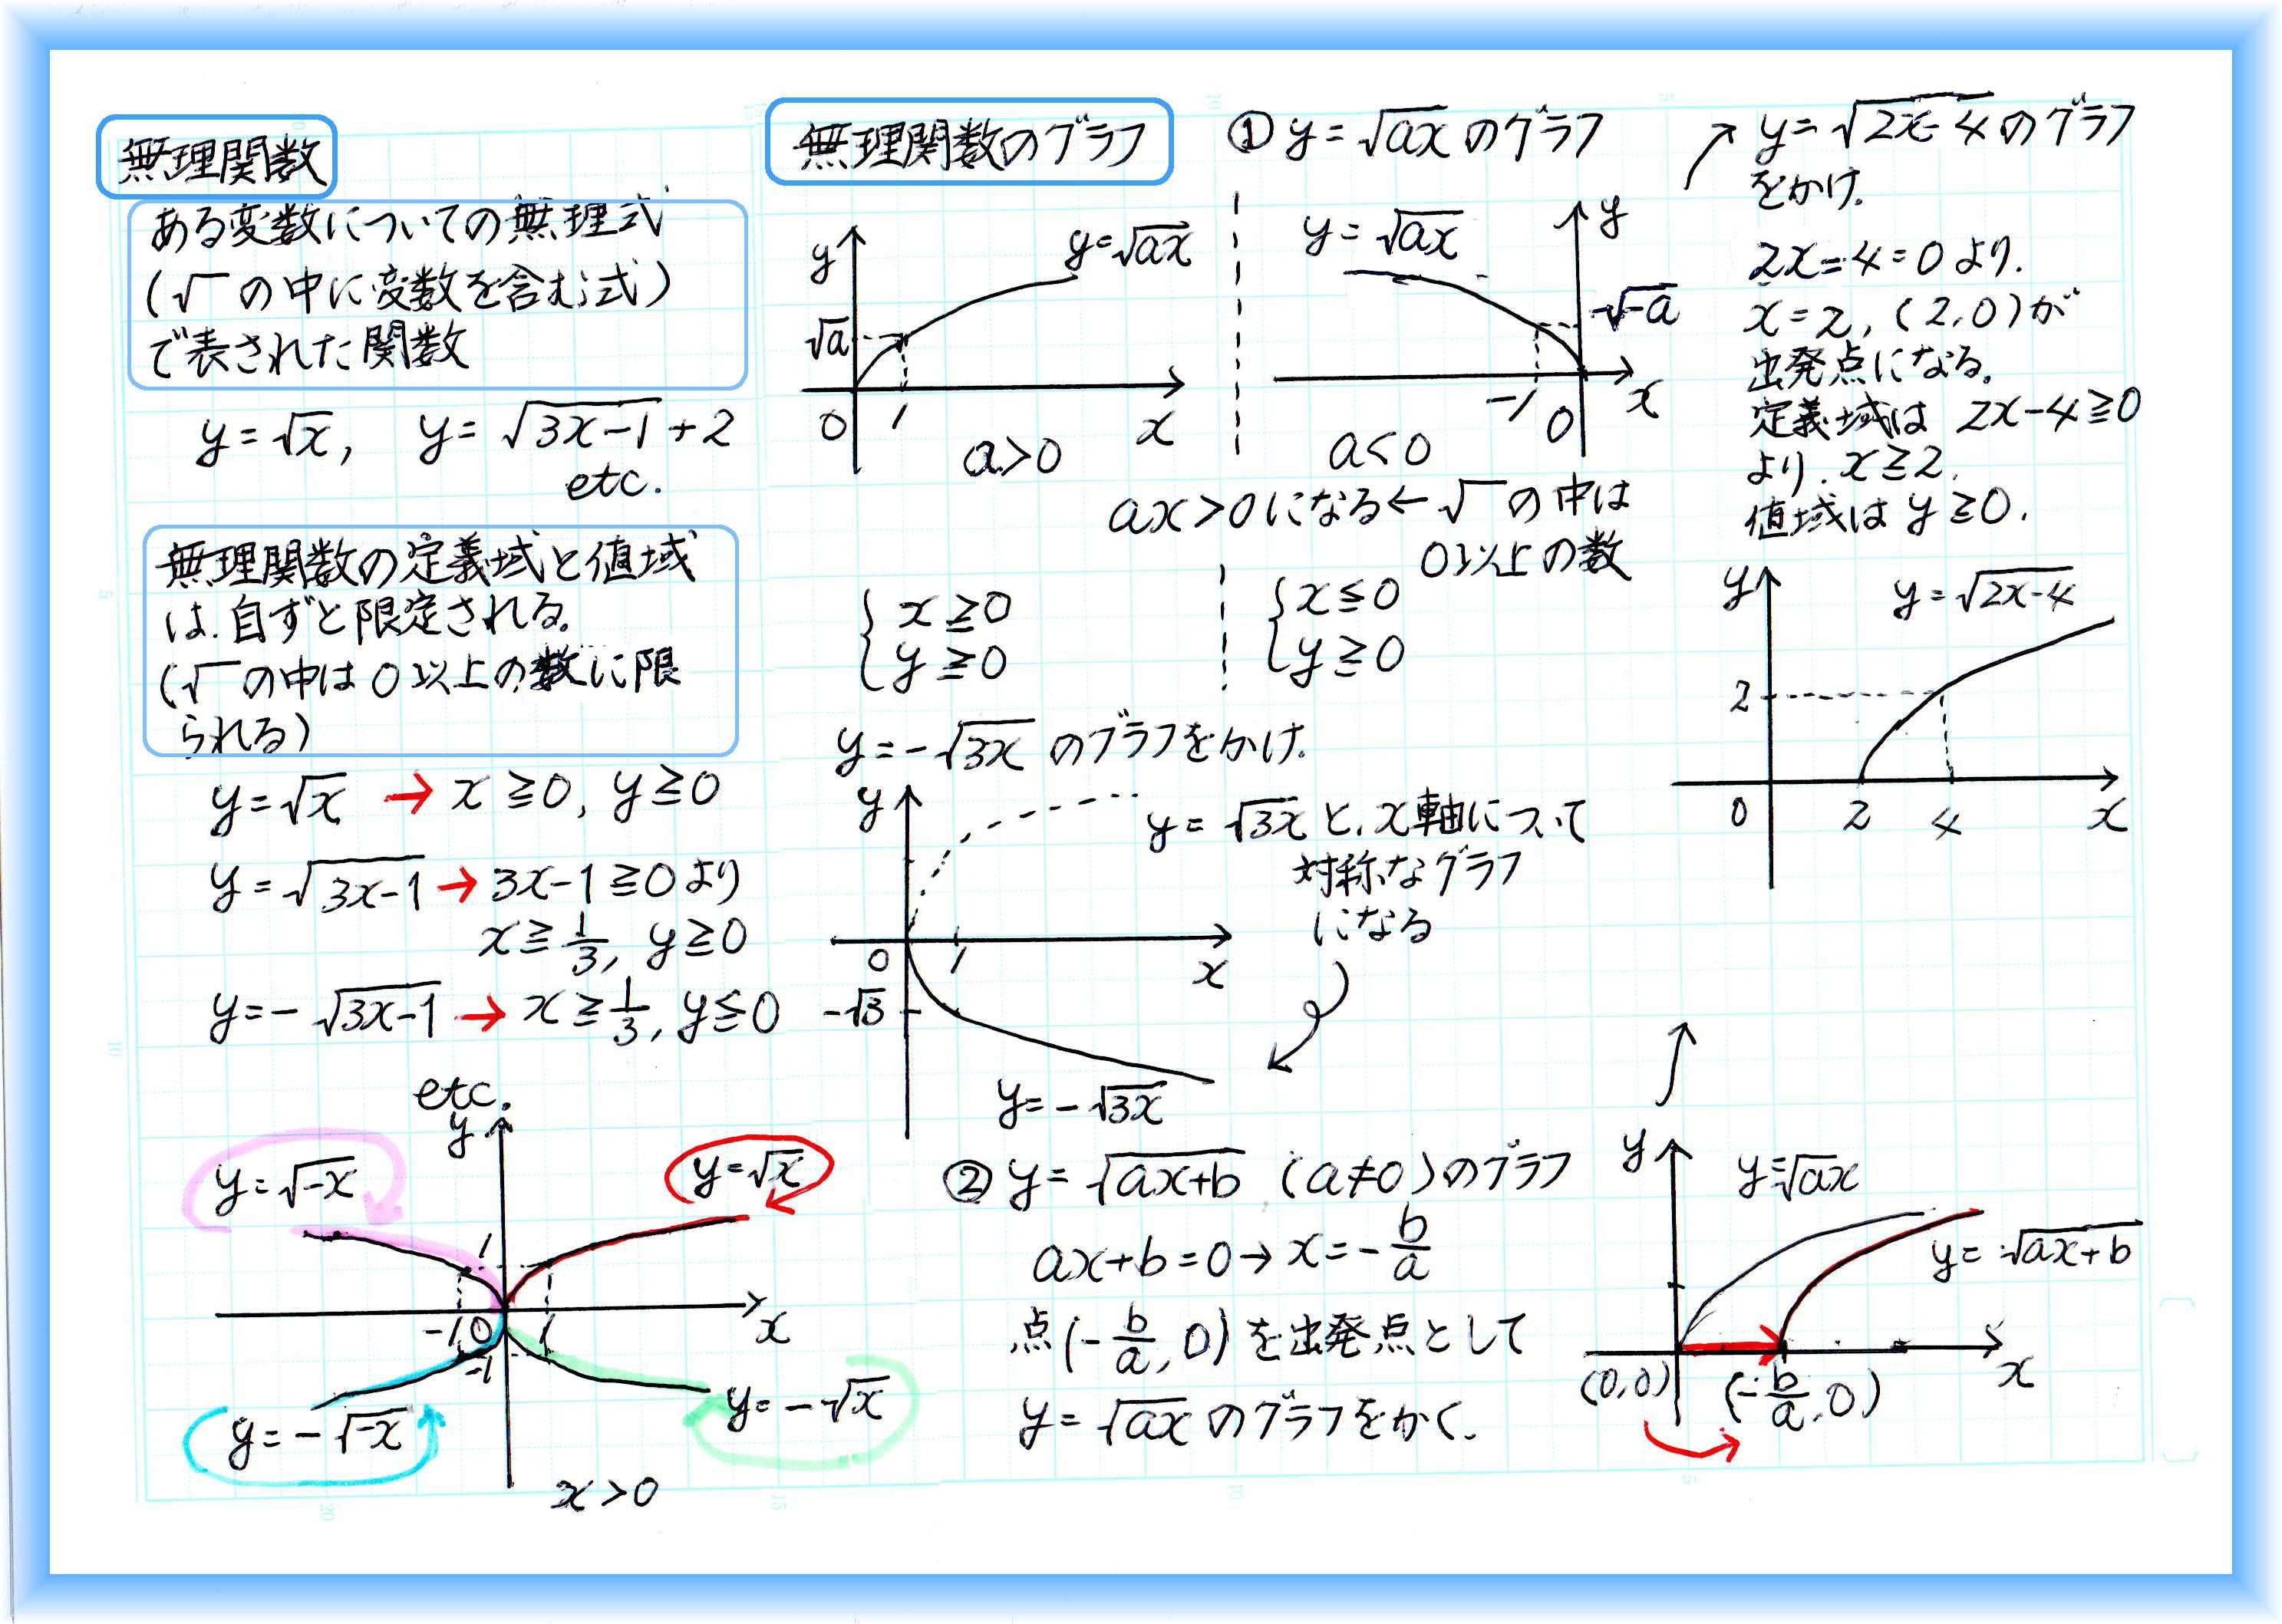 無理関数
ある変数についての無理式
(√ の中に変数を含む式)
で表された関数
y=√x, y=√3x-1+2
etc.
無理関数の定義域と値域
は.自ずと限定される。
(√ の中は0以上の数に限
られる)
y=√x → x≧0, y≧0
y=√3x-1 → 3x-1≧0より
x≧1/3, y≧0
y=-√3x-1 → x≧1/3, y≦0
etc.
y
y=√-x
y=√x
1
x
-1 0 1
-1
y=-√-x
y=-√x
x>0
無理関数のグラフ
① y=√axのグラフ
y
y=√ax
√a
0 1
x
a>0
y=√ax
y
√-a
-1 0
x
a<0
ax>0になる←√ の中は
0以上の数
{ x≧0
y≧0
{ x≦0
y≧0
y=-√3x のグラフをかけ.
y
y=√3xと, x軸について
対称なグラフ
になる
0 1
x
-√3
y=-√3x
② y=√ax+b (a≠0)のグラフ
ax+b=0→x=-b/a
点(-b/a, 0)を出発点として
y=√axのグラフをかく.
y
y=√ax
y=√ax+b
x
(0,0)
(-b/a,0)
y=√2x-4のグラフ
をかけ.
2x-4=0より.
x=2, (2,0)が
出発点になる.
定義域は 2x-4≧0
より. x≧2.
値域はy≧0.
y
y=√2x-4
2
0 2 4
x